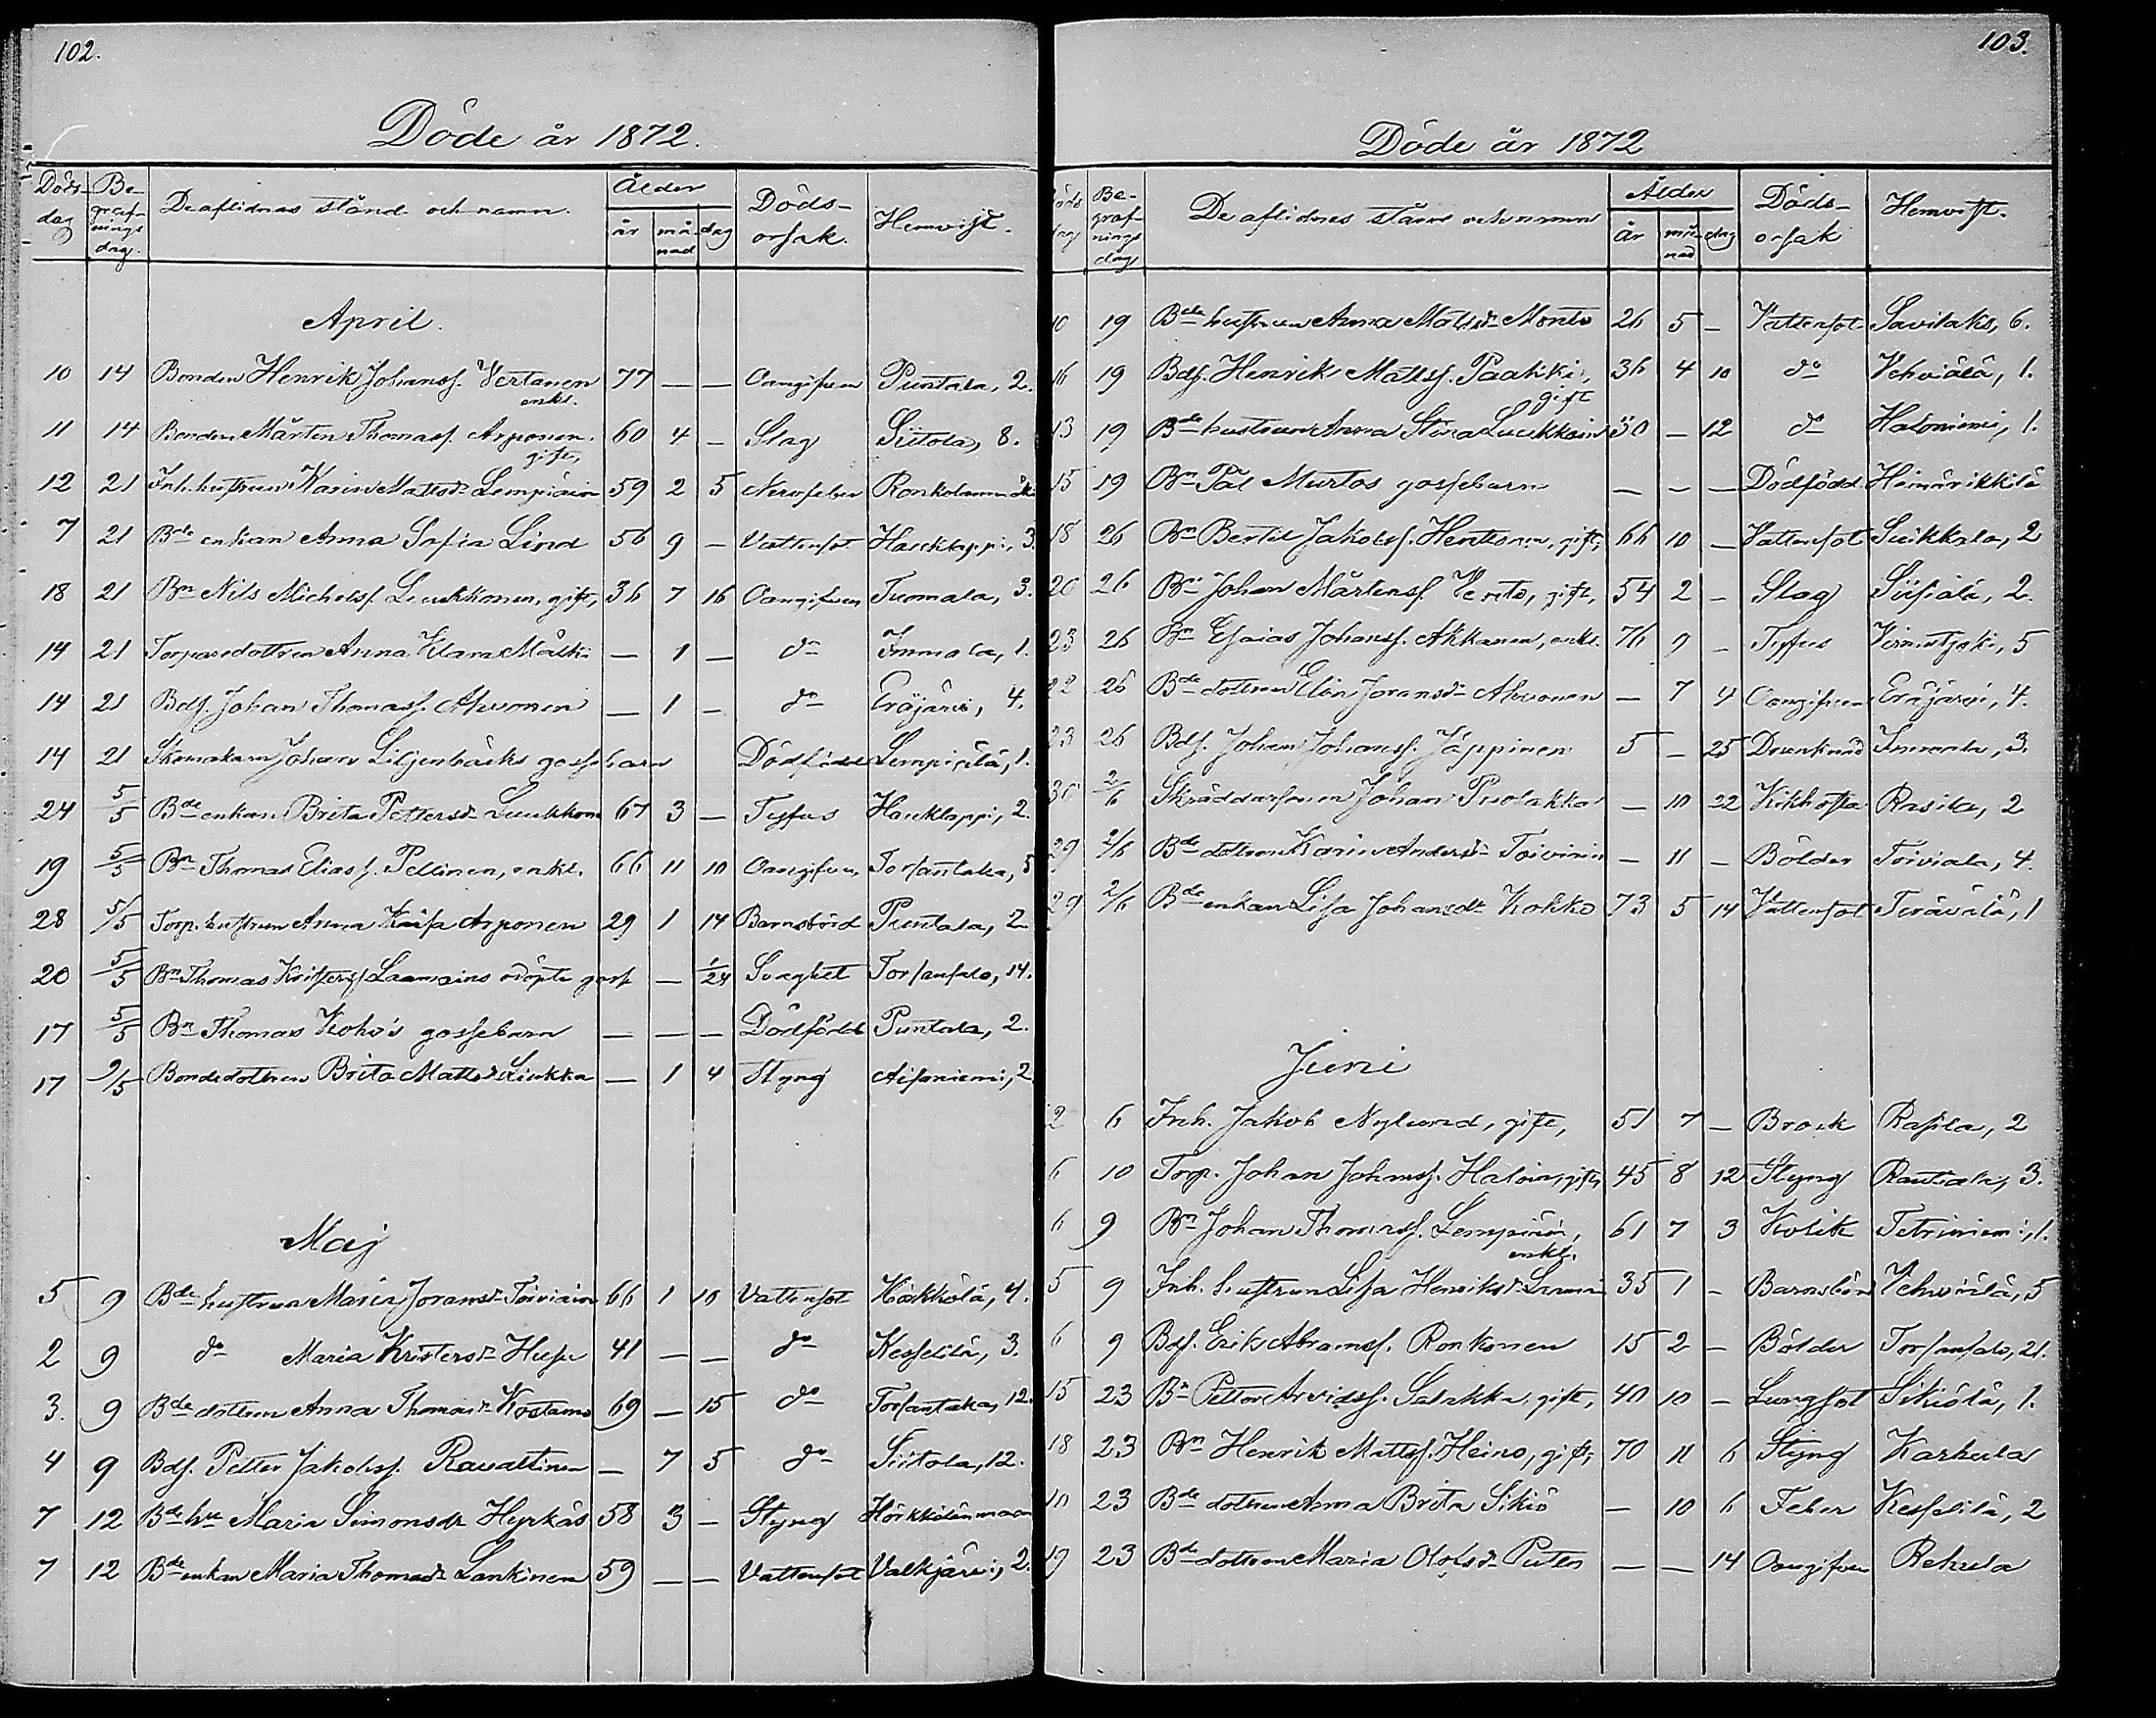 102.
Döde år 1872.
Döds-dag Be-grafnings dag. De aflidnas stånd och namn. Ålder år månad dag Döds-orsak. Hemvist.
April.
10 14 Bonden Henrik Johanss. Vertanen enkl. 77 — — Oangifven Puntala, 2.
11 14 Bonden Mårten Thomass. Arponen. gift, 60 4 — Slag Siitola, 8.
12 21 Inh. hustrun Karin Mattsdr Lempiäin 59 2 5 Nervfeber
7 21 Bde enkan Anna Sofia Lind 56 9 — Vattusot Haukkappi, 3.
18 21 Bn Nils Michelss. Luukkonen, gift, 36 7 16 Oangifven Tuomala, 3.
14 21 Torparedottren Anna Klara Mälk — 1 — do Immala, 1.
14 21 Bdss. Johan Thomass. Ahvonen — 1 — do Eräjärvi, 4.
14 21 Skomakaren Johan Liljenbäcks gossebarn Dödfödd Lempiälä, 1.
24 5/5 Bde enkan Brita Pettersdr Luukkone 67 3 — Tyfus Haukkappi, 2.
19 5/5 Bn Thomas Eliass. Pellinen, enkl. 66 11 10 Oangifven Torsantaka, 5
28 5/5 Torp. hustrun Anna Kaisa Arponen 29 1 14 Barnsbörd Puntala, 2
20 5/5 Bn Thomas Kristerss. Laamains odöpte goss — 1/24 Svaghet Torsansalo, 14.
17 5/5 Bn Thomas Koho's gossebarn — — — Dödfödd Puntala, 2.
17 9/5 Bondedottren Brita Mattsdr Liukka — 1 4 Styng Aisaniemi, 2
Maj
5 9 Bde hustrun Maria Joransdr Toiviain 66 1 10 Vattusot Käkkölä, 4.
2 9 do Maria Kristersdr Husu 41 — — do Kesselilä, 3.
3. 9 Bde dottren Anna Thomasdr Kostamo 69 — 15 do Torsantaka, 12.
4 9 Bdss. Petter Jakobss. Ravattinen — 7 5 do Siitola, 12.
7 12 Bde hu Maria Simonsdr Hyrkäs 58 3 — Styng
7 12 Bde enkan Maria Thomasdr Lankinen 59 — — Vattusot Valkjärvi, 2.
103.
Döde år 1872
Döds dag Be-grafnings dag De aflidnes stånd och namn Ålder år månad dag Döds-orsak Hemvist.
10 19 Bde hustrun Anna Mattsdr Monto 26 5 — Vattusot Savilaks, 6.
16 19 Bdss. Henrik Mattss. Paakki, gift 36 4 10 do Vehviälä, 1.
13 19 Bde hustrun Anna Stina Luukkain 30 — 12 do Haloniemi, 1.
15 19 Bn Pål Murtos gossebarn — — — Dödfödd
18 26 Bn Bertil Jakobss. Henttonen, gift, 66 10 — Vattusot Suikkala, 2
20 26 Bn Johan Mårtenss. Vento, gift, 54 2 — Slag Siisiälä, 2.
23 26 Bn Esaias Johanss. Akkanen, enkl. 76 9 — Tyfus 5
22 26 Bde dottren Elin Joransdr Ahvonen — 7 4 Oangifven Eräjärvi, 4.
23 26 Bdss. Johan Johanss. Jäppinen 5 — 25 Drunknad Immala, 3.
30 2/6 Skräddarsonen Johan Puolakka — 10 22 Kikhosta Rasila, 2
29 2/6 Bde dottren Karin Andersdr Toivinin — 11 — Bölder Toiviala, 4.
29 2/6 Bde enkan Lisa Johansdr Kokko 73 5 14 Vattusot Terävälä, 1
Juni
2 6 Inh. Jakob Nylund, gift, 51 7 — Brock Rasila, 2
6 10 Torp. Johan Johanss. Haloin, gift, 45 8 12 Styng Rautiala, 3.
6 9 Bn Johan Thomass. Lempiäin, enkl. 61 7 3 Kolik Tetriniemi, 1.
5 9 Inh. hustrun Lisa Henriksdr 35 1 — Barnsbörd Vehviälä, 5
6 9 Bdss. Erik Abramss. Ronkonen 15 2 — Bölder Torsansalo, 21.
15 23 Bn Petter Arvidss. Salakka, gift, 40 10 — Lungsot Sikiölä, 1.
18 23 Bn Henrik Mattss. Heino, gift, 70 11 6 Styng Karkula
10 23 Bde dottren Anna Brita Sikiö — 10 6 Feber Kesselilä, 2
19 23 Bde dottren Maria Olofsdr Puto — — 14 Oangifven Rekula